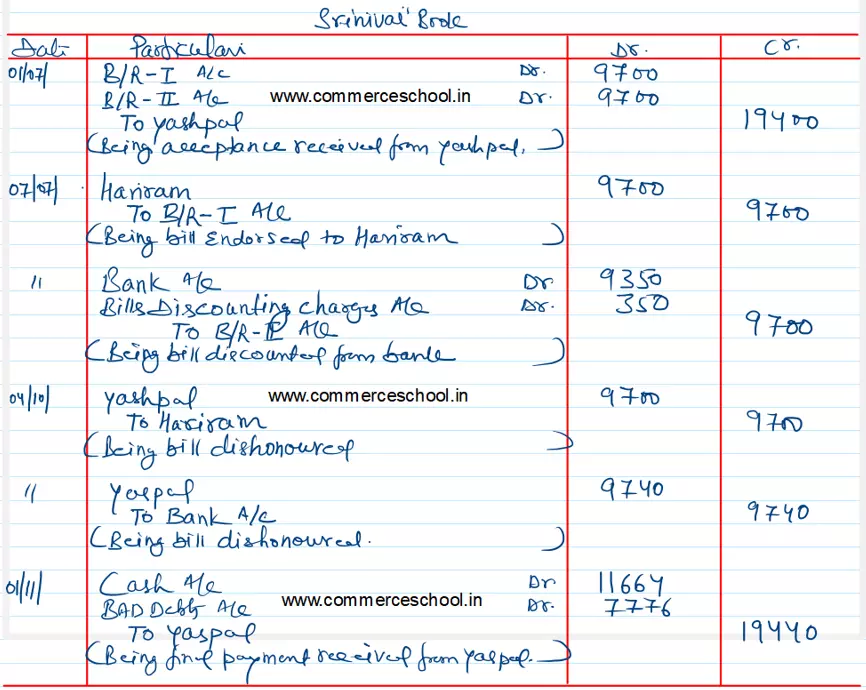 Srinivas' Book
Date Particulars Dr. Cr.
01/07/ B/R-I A/c Dr. 9700
B/R-II A/c www.commerceschool.in Dr. 9700
To yashpal 19400
(Being acceptance received from yashpal.)
07/07/ Hariram 9700
To B/R-I A/c 9700
(Being bill Endorsed to Hariram)
" Bank A/c Dr 9350
Bills Discounting charges A/c Dr. 350
To B/R-II A/c 9700
(Being bill discounted from bank)
04/10/ yashpal www.commerceschool.in 9700
To Hariram 9700
(Being bill dishonoured)
" yaspal 9740
To Bank A/c 9740
(Being bill dishonoured.)
01/11/ Cash A/c Dr 11664
BAD Debts A/c www.commerceschool.in Dr. 7776
To yaspal 19440
(Being final payment received from yaspal.)